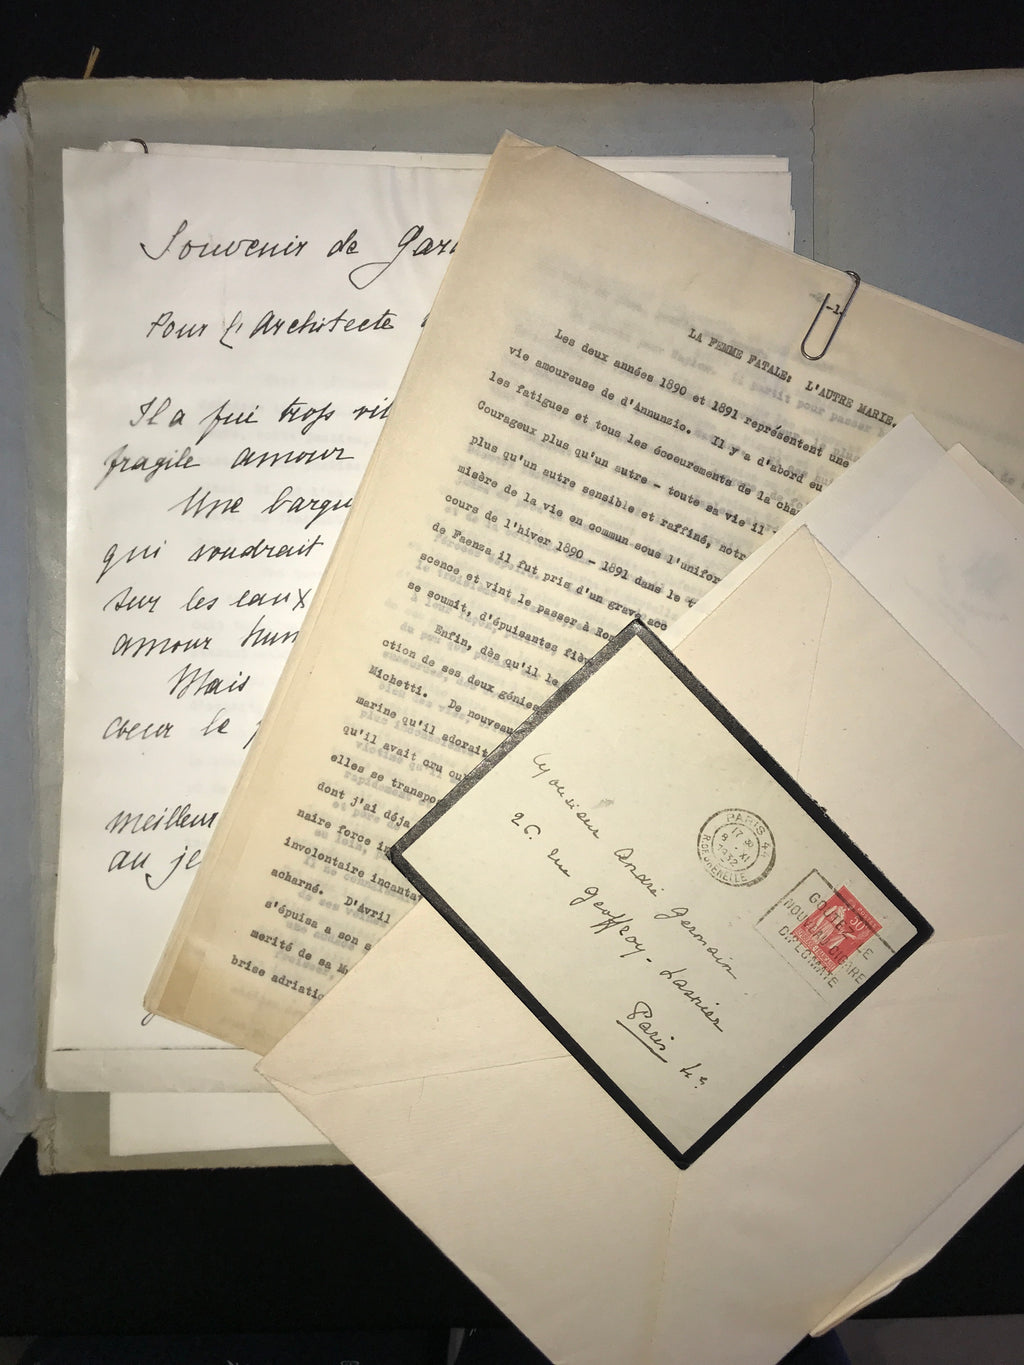 Souvenir de Gar
Pour l'Architecte
Il a fui trop vit
fragile amour
Une barqu
qui voudrait
sur les eaux
amour hum
Mais
coeur le
meilleur
au je
-1-
LA FEMME FATALE: L'AUTRE MARIE.
Les deux années 1890 et 1891 représentent une
vie amoureuse de d'Annunzio. Il y a d'abord eu
les fatigues et tous les écoeurements de la cha
Courageux plus qu'un autre - toute sa vie il
plus qu'un autre sensible et raffiné, notr
misère de la vie en commun sous l'unifor
cours de l'hiver 1890 - 1891 dans le t
de Faenza il fut pris d'un grave acc
scence et vint le passer à Rom
se soumit, d'épuisantes fièv
Enfin, dès qu'il le
ction de ses deux génies
Michetti. De nouveau
marine qu'il adorait
qu'il avait cru out
elles se transpo
dont j'ai déja
naire force in
involontaire incanta
acharné. D'Avril
s'épuisa a son s
merité de sa M
brise adriatic
Monsieur André Germain
26. rue Geoffroy-Lasnier
Paris 4e
PARIS 44
17 30
8 XI
1932
R. DE GRENELLE
50